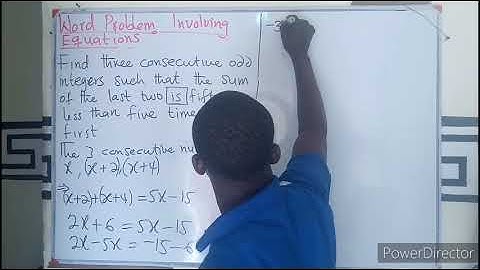 Word Problem Involving
Equations
Find three consecutive odd
integers such that the sum
of the last two is
less than five
first
The 3 consecutive
x, (x+2), (x+4)
⇒(x+2)+(x+4) = 5x-15
2x+6 = 5x-15
2x-5x = -15-6
PowerDirector